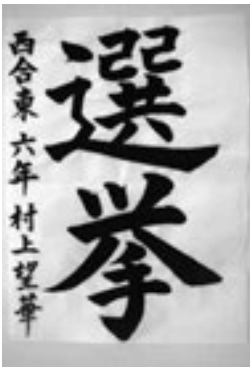 選挙
西合東 六年 村上望華